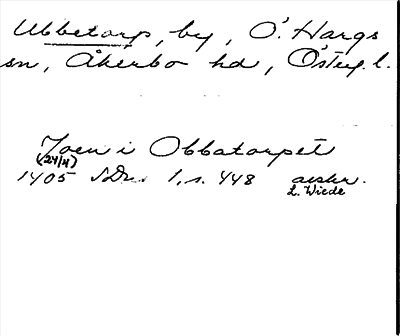 Ubbetorp, by, Ö. Hargs
sn, Åkerbo hd, Östg. l.
Joen i Obbatorpet
(24/11)
1405 SDns 1, s. 448 avskr.
L. Wiede